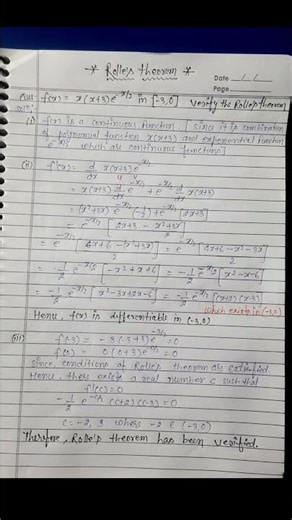 * Rolle's theorem *
Date / /
Page
Que: f(x) = x(x+3)e^{-x/2} in [-3,0] Verify the Rolle's theorem
(i) f(x) is a continuous function [Since it is combination
of polynomial function x(x+3) and exponential function
e^{-x/2} which are continuous functions]
(ii) f'(x) = d/dx x(x+3)e^{-x/2}
u v
= x(x+3) d/dx e^{-x/2} + e^{-x/2} d/dx x(x+3)
= (x²+3x) e^{-x/2} (-1/2) + e^{-x/2} [2x+3]
= e^{-x/2} [2x+3 - x²+3x/2]
= e^{-x/2} [4x+6-(x²+3x)/2] = e^{-x/2} [4x+6-x²-3x/2]
= -1/2 e^{-x/2} [-x²+x+6] = -1/2 e^{-x/2} [x²-x-6]
= -1/2 e^{-x/2} [x²-3x+2x-6] = -1/2 e^{-x/2} (x+2)(x-3)
which exists in (-3,0)
Hence, f(x) is differentiable in (-3,0)
(iii) f(-3) = -3(-3+3)e^{-3/2} = 0
f(0) = 0(0+3)e^{0} = 0
Since, conditions of Rolle's theorem are satisfied.
Hence, there exists a real number c such that
f'(c) = 0
-1/2 e^{-c/2} (c+2)(c-3) = 0
c = -2, 3 where -2 ∈ (-3,0)
Therefore, Rolle's theorem has been verified.